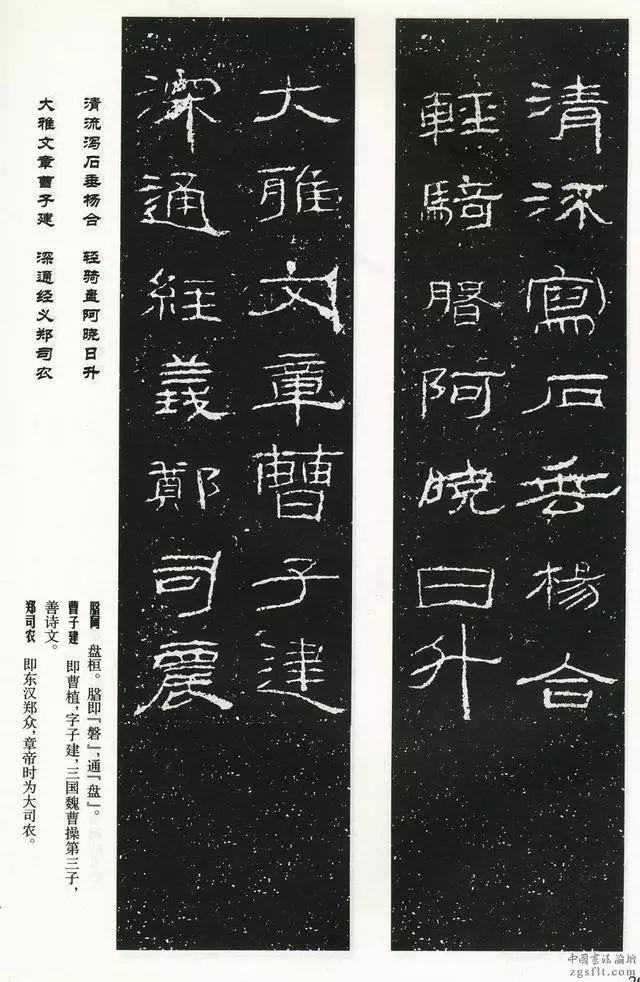 清深寫石垂楊合
輕騎阿曉日升
大雅文章曹子建
深通經義鄭司農
清流泻石垂杨合 轻骑盘阿晓日升
大雅文章曹子建 深通经义郑司农
阿 盘桓。即『磐』,通『盘』。
曹子建 即曹植,字子建,三国魏曹操第三子,
善诗文。
郑司农 即东汉郑众,章帝时为大司农。
中国書法論壇
zgsflt.com